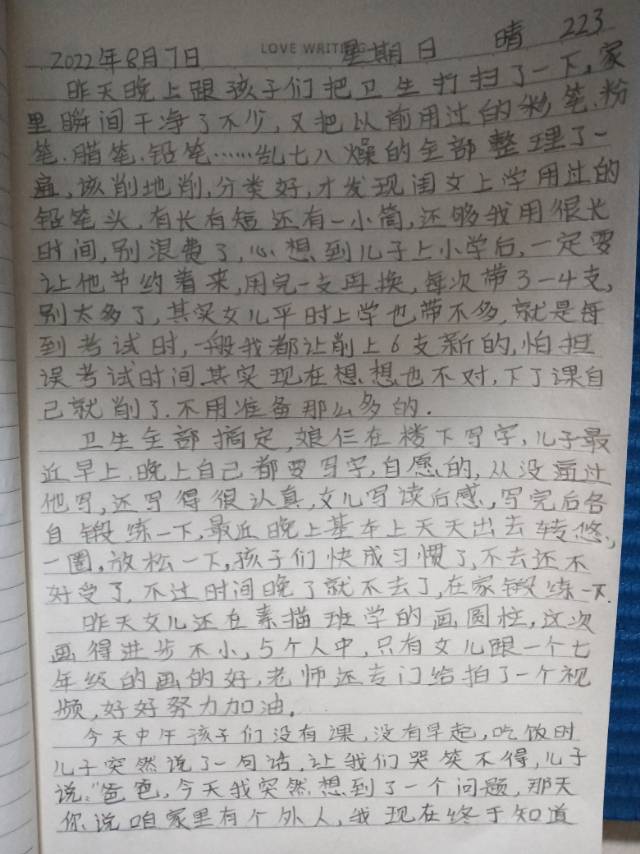 223
LOVE WRITING
2022年8月7日 星期日 晴
昨天晚上跟孩子们把卫生打扫了一下,家
里瞬间干净了不少,又把以前用过的彩笔、粉
笔、腊笔、铅笔……乱七八燥的全部整理了一
遍,该削地削,分类好,才发现闺女上学用过的
铅笔头,有长有短还有一小筒,还够我用很长
时间,别浪费了,心想到儿子上小学后,一定要
让他节约着来,用完一支再换,每次带3-4支,
别太多了,其实女儿平时上学也带不多,就是每
到考试时,一般我都让削上6支新的,怕担
误考试时间.其实现在想想也不对,下了课自
己就削了.不用准备那么多的.
卫生全部搞定,娘仨在楼下写字,儿子最
近早上、晚上自己都要写字,自愿的,从没逼过
他写,还写得很认真,女儿写读后感,写完后各
自锻炼一下,最近晚上基本上天天出去转悠,
一圈,放松一下,孩子们快成习惯了,不去还不
好受了,不过时间晚了就不去了,在家锻炼一下.
昨天女儿还在素描班学的画圆柱,这次
画得进步不小,5个人中,只有女儿跟一个七
年级的画的好,老师还专门给拍了一个视
频,好好努力加油.
今天中午孩子们没有课,没有早起,吃饭时
儿子突然说了一句话,让我们哭笑不得,儿子
说:"爸爸,今天我突然想到了一个问题,那天
你说咱家里有个外人,我现在终于知道